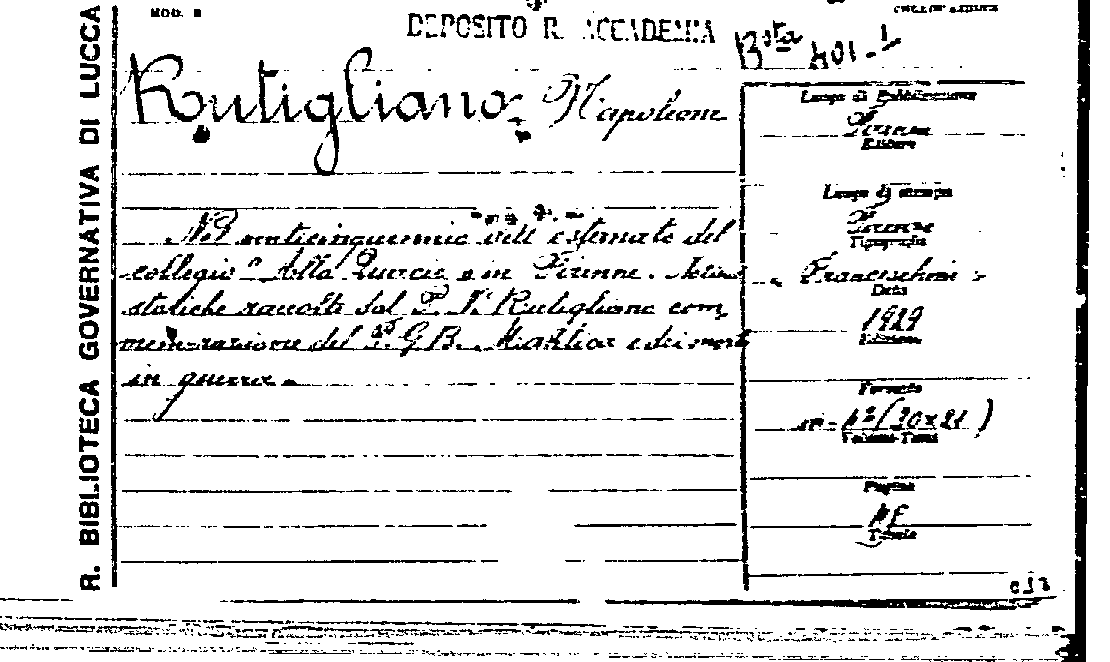 MOD. B
DEPOSITO R. ACCADEMIA
Bsta 401-1
R. BIBLIOTECA GOVERNATIVA DI LUCCA
Rutigliano, Napoleone
Nel venticinquennio dell'esternato del
collegio "Alla Querce" in Firenze. Notizie
storiche raccolte dal P. N. Rutigliano com
memorazione del P. G.B. e dei morti
in guerra.
Luogo di Pubblicazione
Firenze
Editore
Luogo di stampa
Firenze
Tipografia
Franceschini
Data
1929
Edizione
Formato
(30x21)
Volume-Tomo
Pagine
Tavole